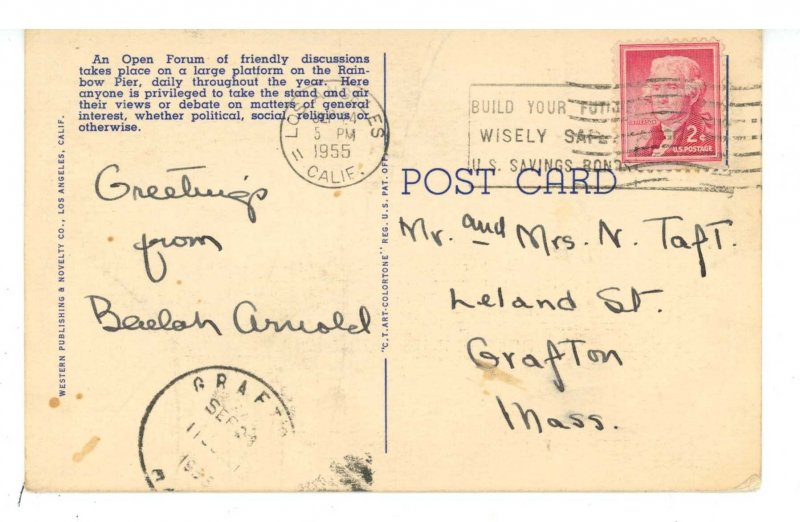 An Open Forum of friendly discussions
takes place on a large platform on the Rain-
bow Pier, daily throughout the year. Here
anyone is privileged to take the stand and air
their views or debate on matters of general
interest, whether political, social, religious or
otherwise.
WESTERN PUBLISHING & NOVELTY CO., LOS ANGELES, CALIF.
Greetings
from
Beulah Arnold
GRAFT
SEP
"C.T. ART-COLORTONE" REG. U.S. PAT. OFF.
LOS
5 PM
1955
CALIF.
BUILD YOUR
WISELY SAFE
U.S. SAVINGS BOND
2¢
U.S. POSTAGE
POST CARD
Mr. and Mrs. N. Taft.
Leland St.
Grafton
Mass.